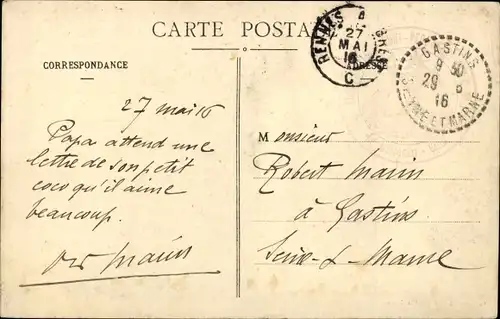 CARTE POSTA
CORRESPONDANCE
ADRESSE
RENNES
27
MAI
16
C
GASTINS
9 50
29 5
16
SEINE ET MARNE
27 mai 16
Papa attend une
lettre de son petit
coco qu'il aime
beaucoup.
Marin
Monsieur
Robert Marin
à Gastins
Seine-&-Marne